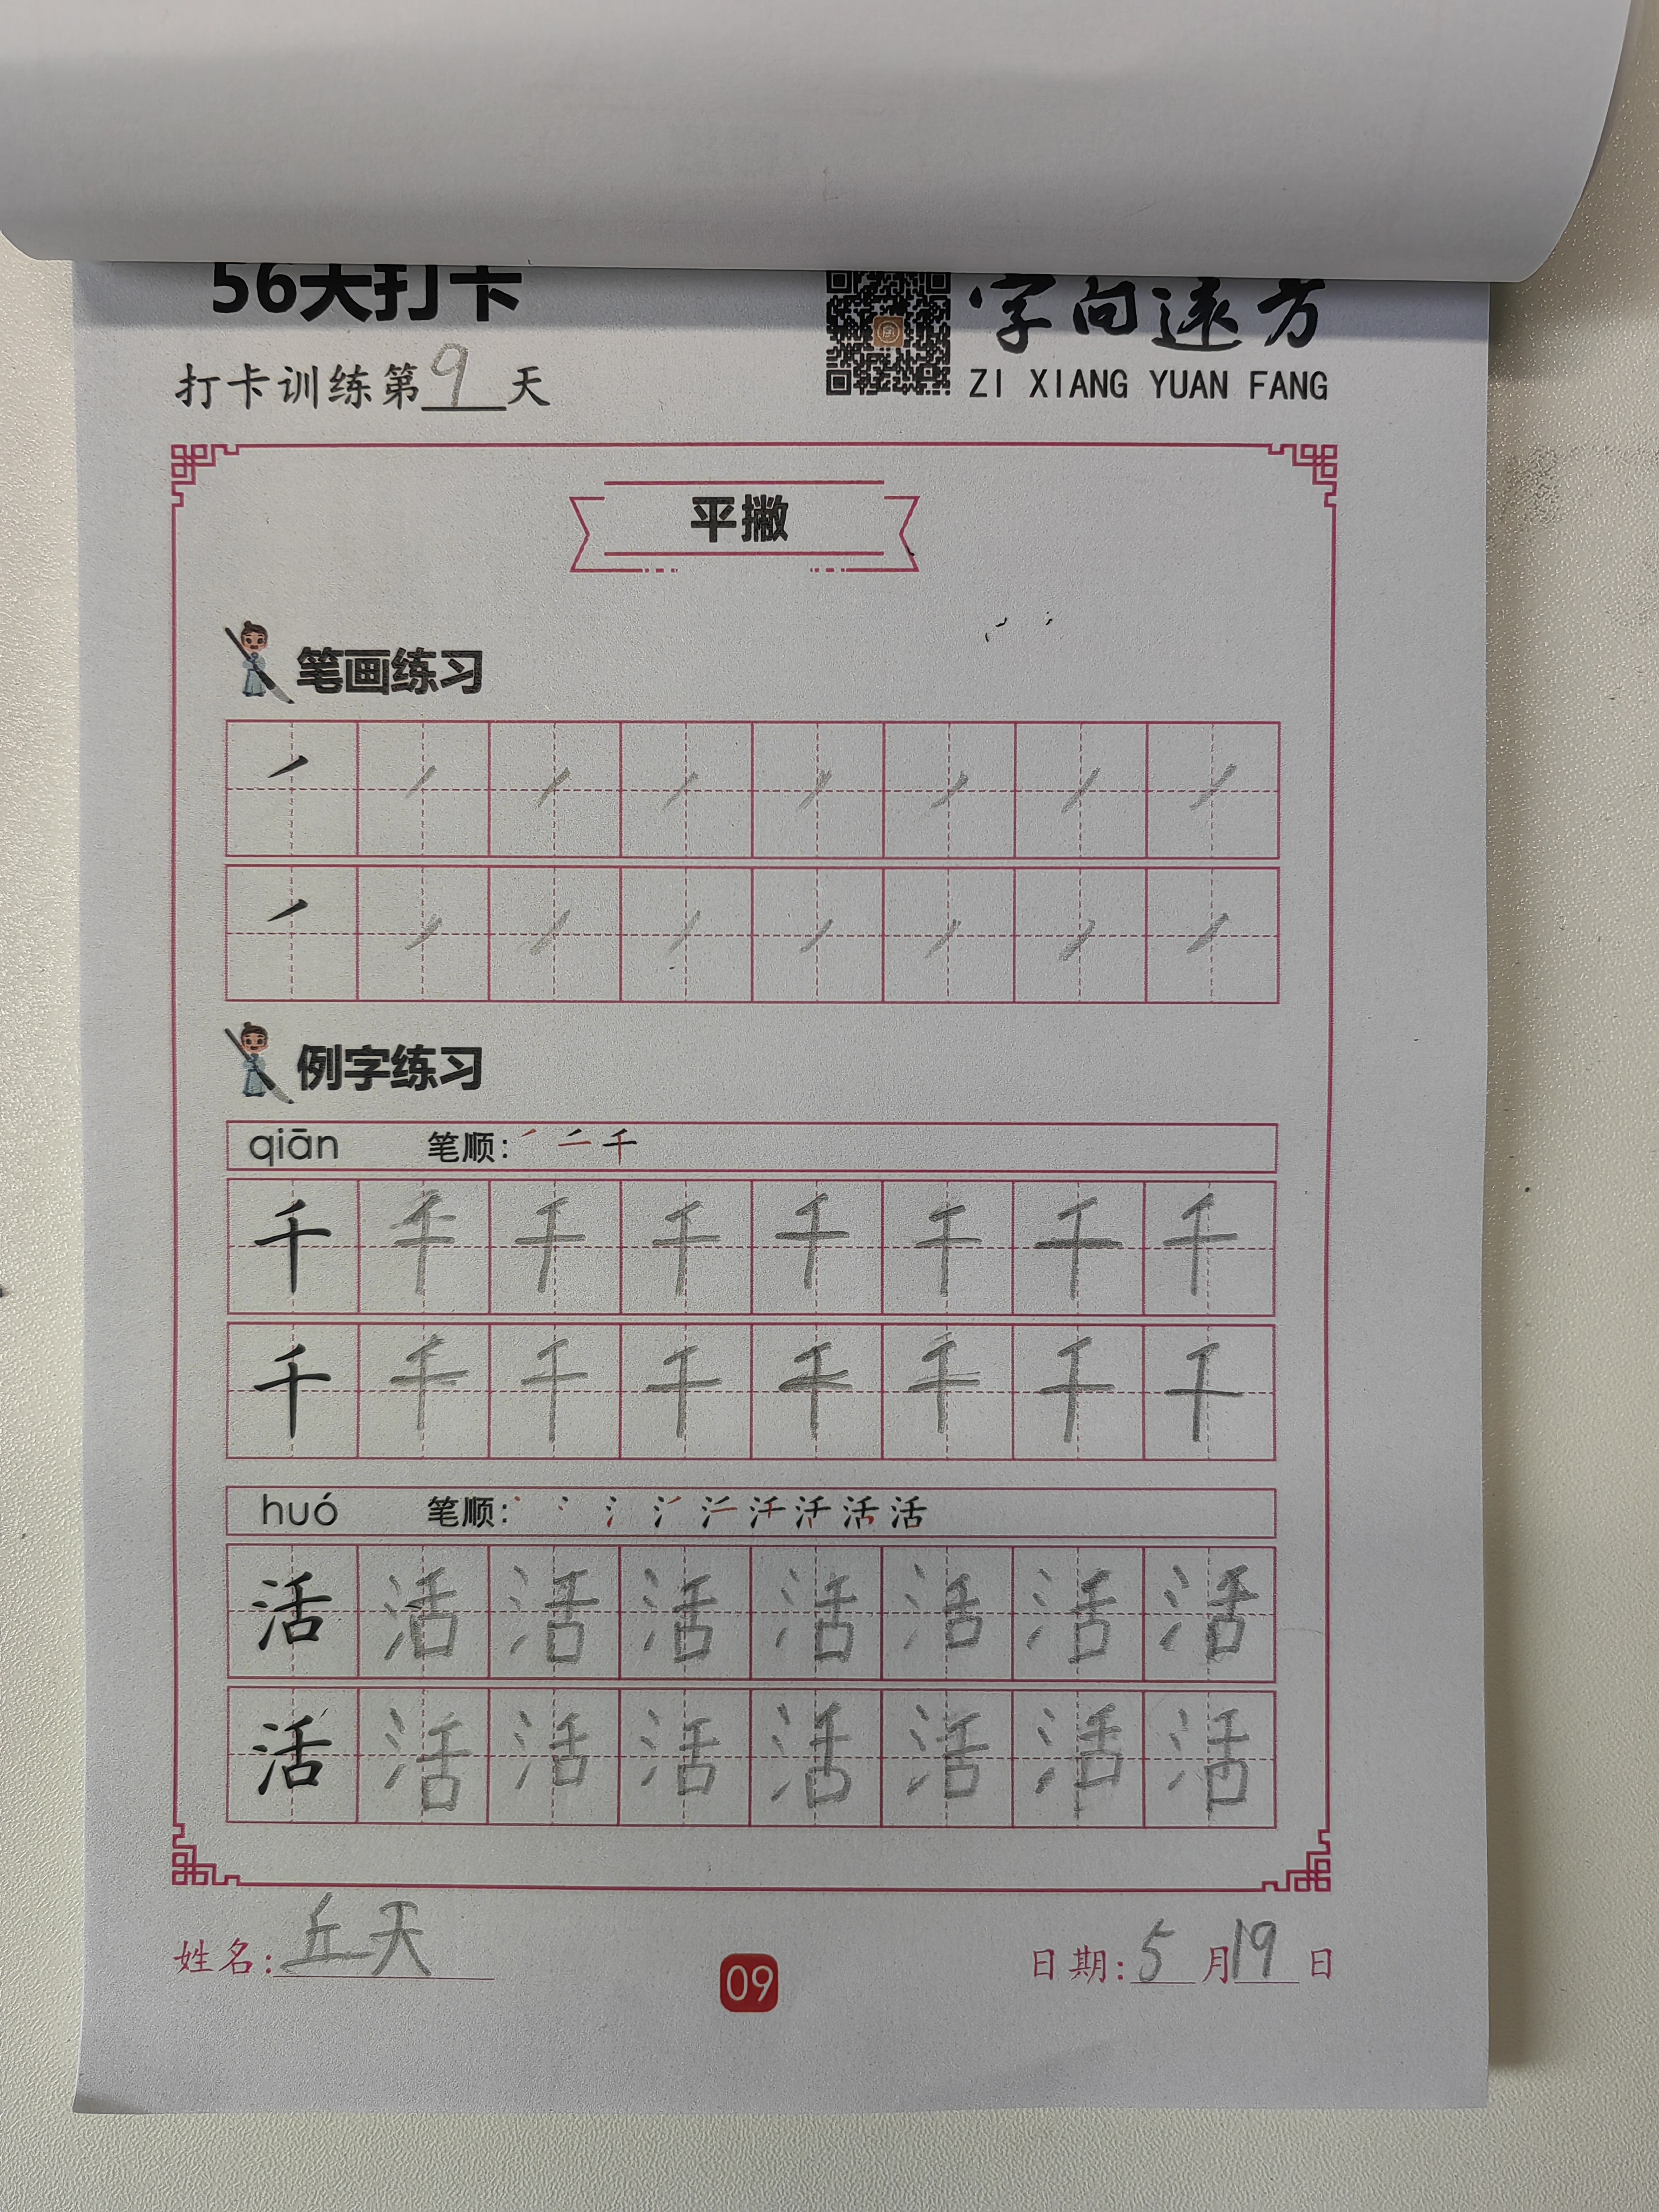 56天打卡
字向远方
打卡训练第9天
ZI XIANG YUAN FANG
平撇
笔画练习
例字练习
qiān 笔顺:
千 千 千 千 千 千 千 千
千 千 千 千 千 千 千 千
huó 笔顺:
活 活 活 活 活 活 活 活
活 活 活 活 活 活 活 活
姓名: 丘天
09
日期: 5月19日